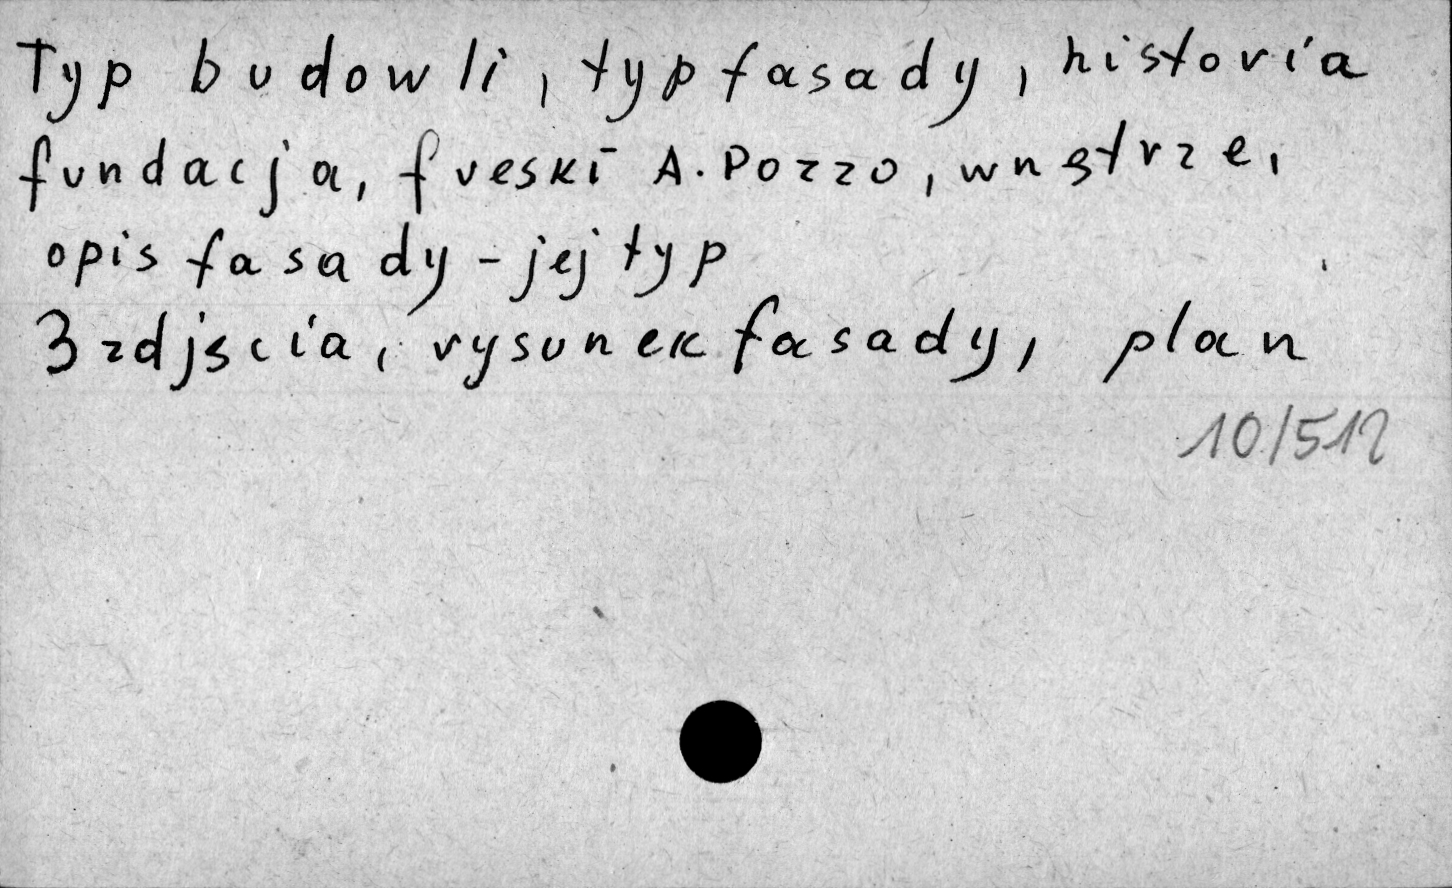 Typ budowli, typ fasady, historia
fundacja, freski A. Pozzo, wnstrze,
opis fasady - jej typ
3 zdjscia, rysunek fasady, plan
10/512